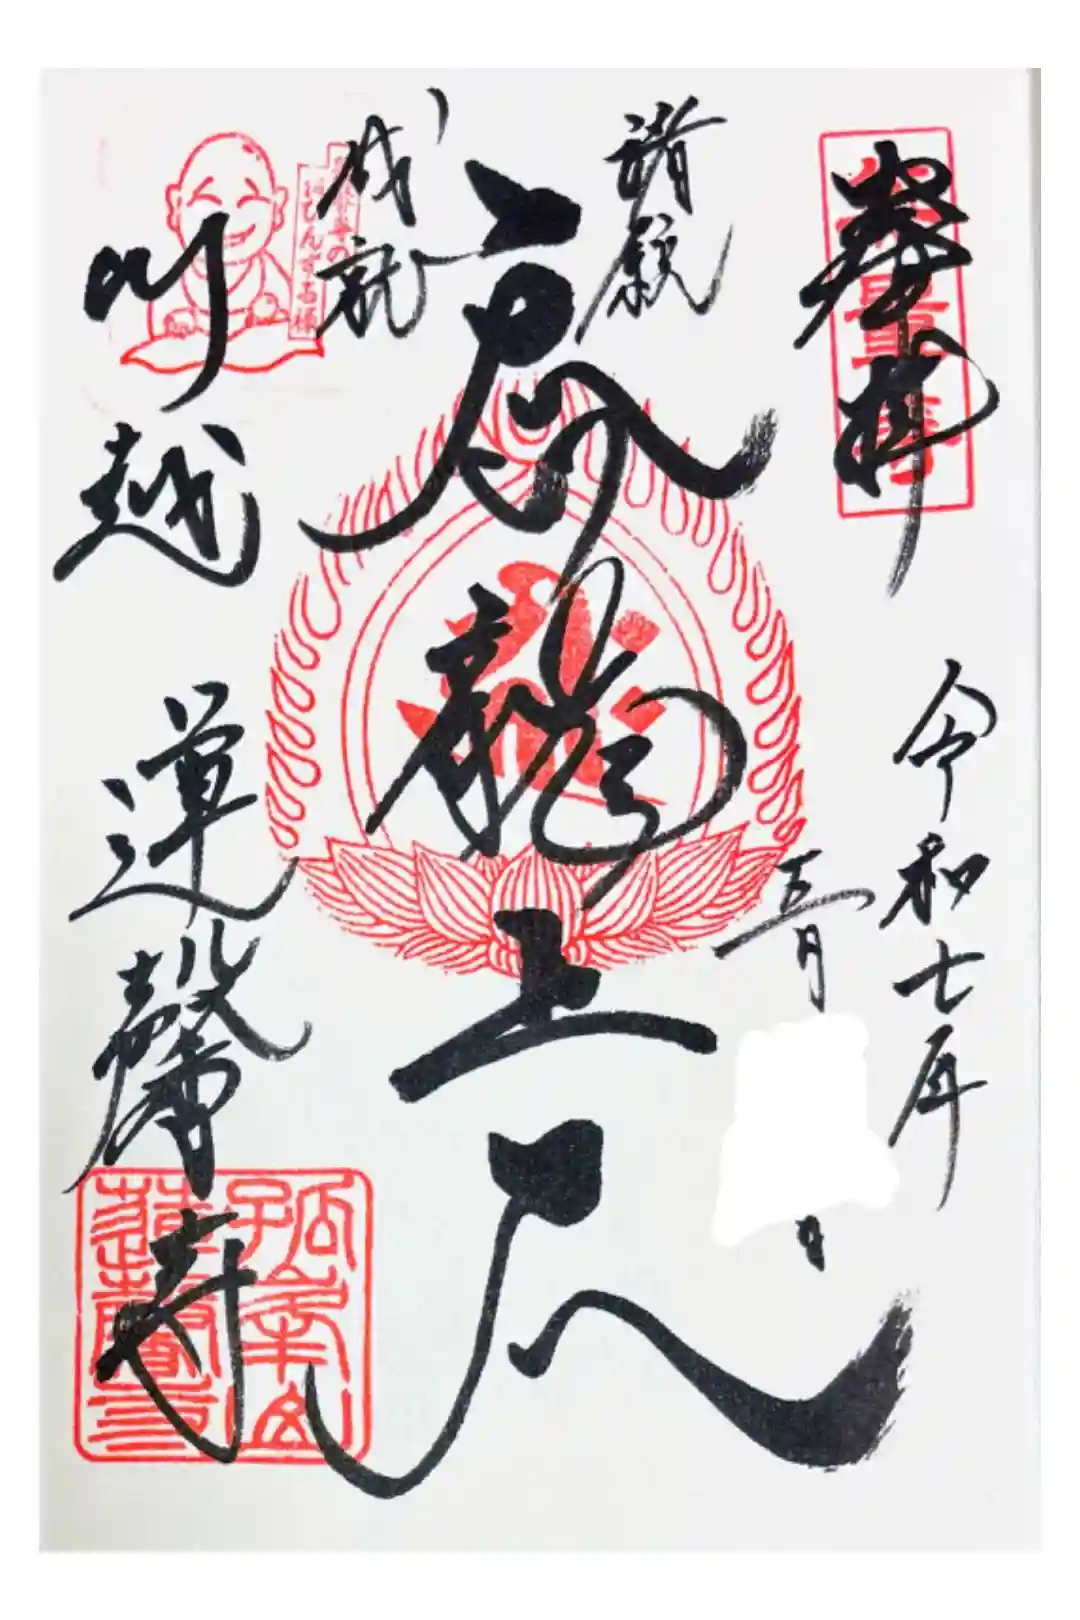 奉拝
令和七年
五月
日
諸願
成就
呑龍上人
川越
蓮馨寺
孤峯山
蓮馨寺
おびんずる様